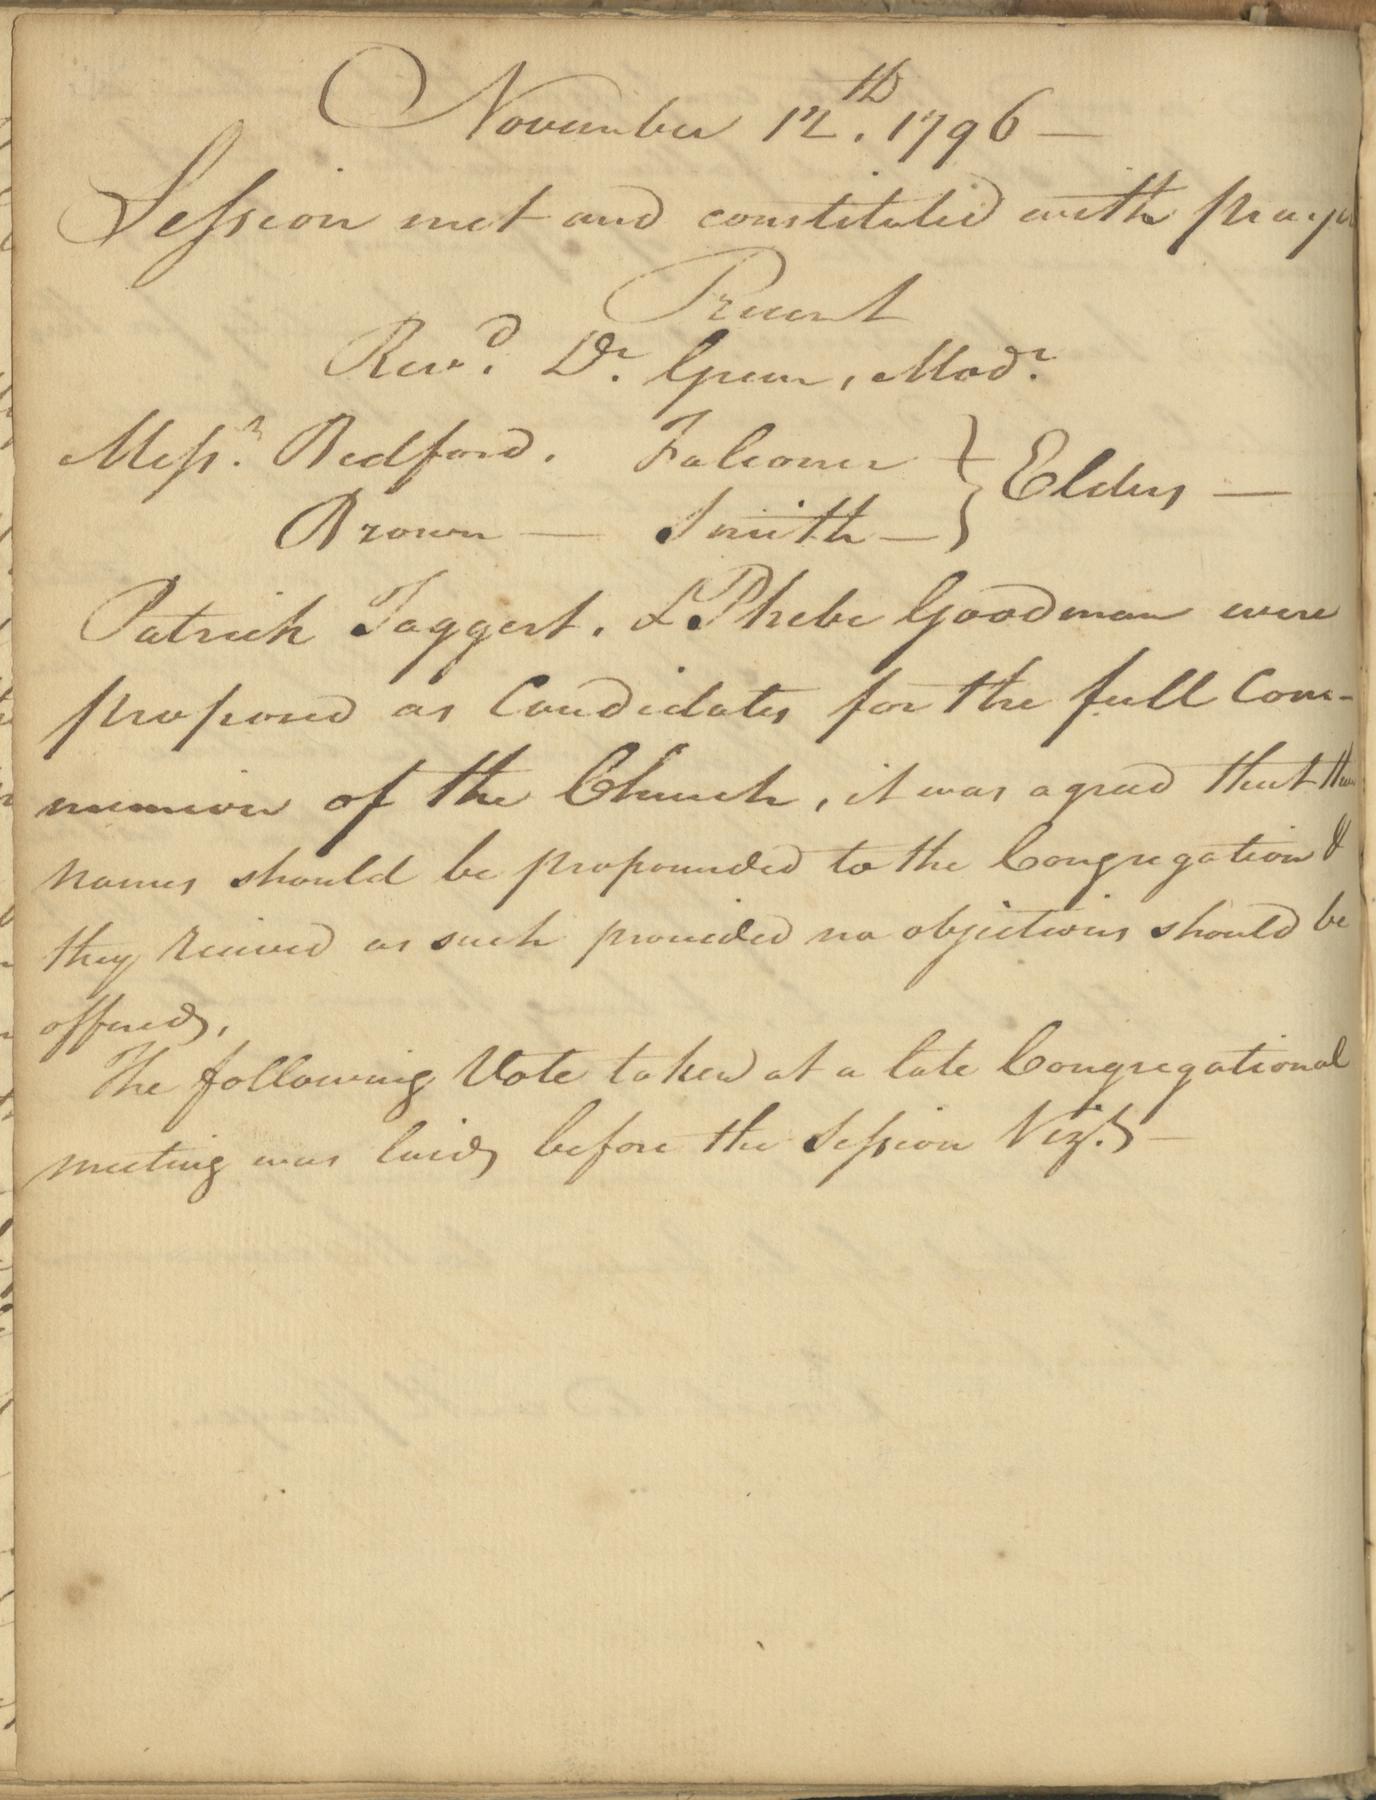 November 12th. 1796 —
Session met and constituted with pray
Present
Revd. Dr. Green, Modr.
Messrs. Bedford. Falconer } Elders —
Brown — Smith —
Patrick Taggert. & Phebe Goodman were
proposed as Candidates for the full Com-
munion of the Church, it was agreed that
names should be propounded to the Congregation &
they received as such provided no objections should be
offered,
The following Vote taken at a late Congregational
meeting was laid before the Session Viz. —